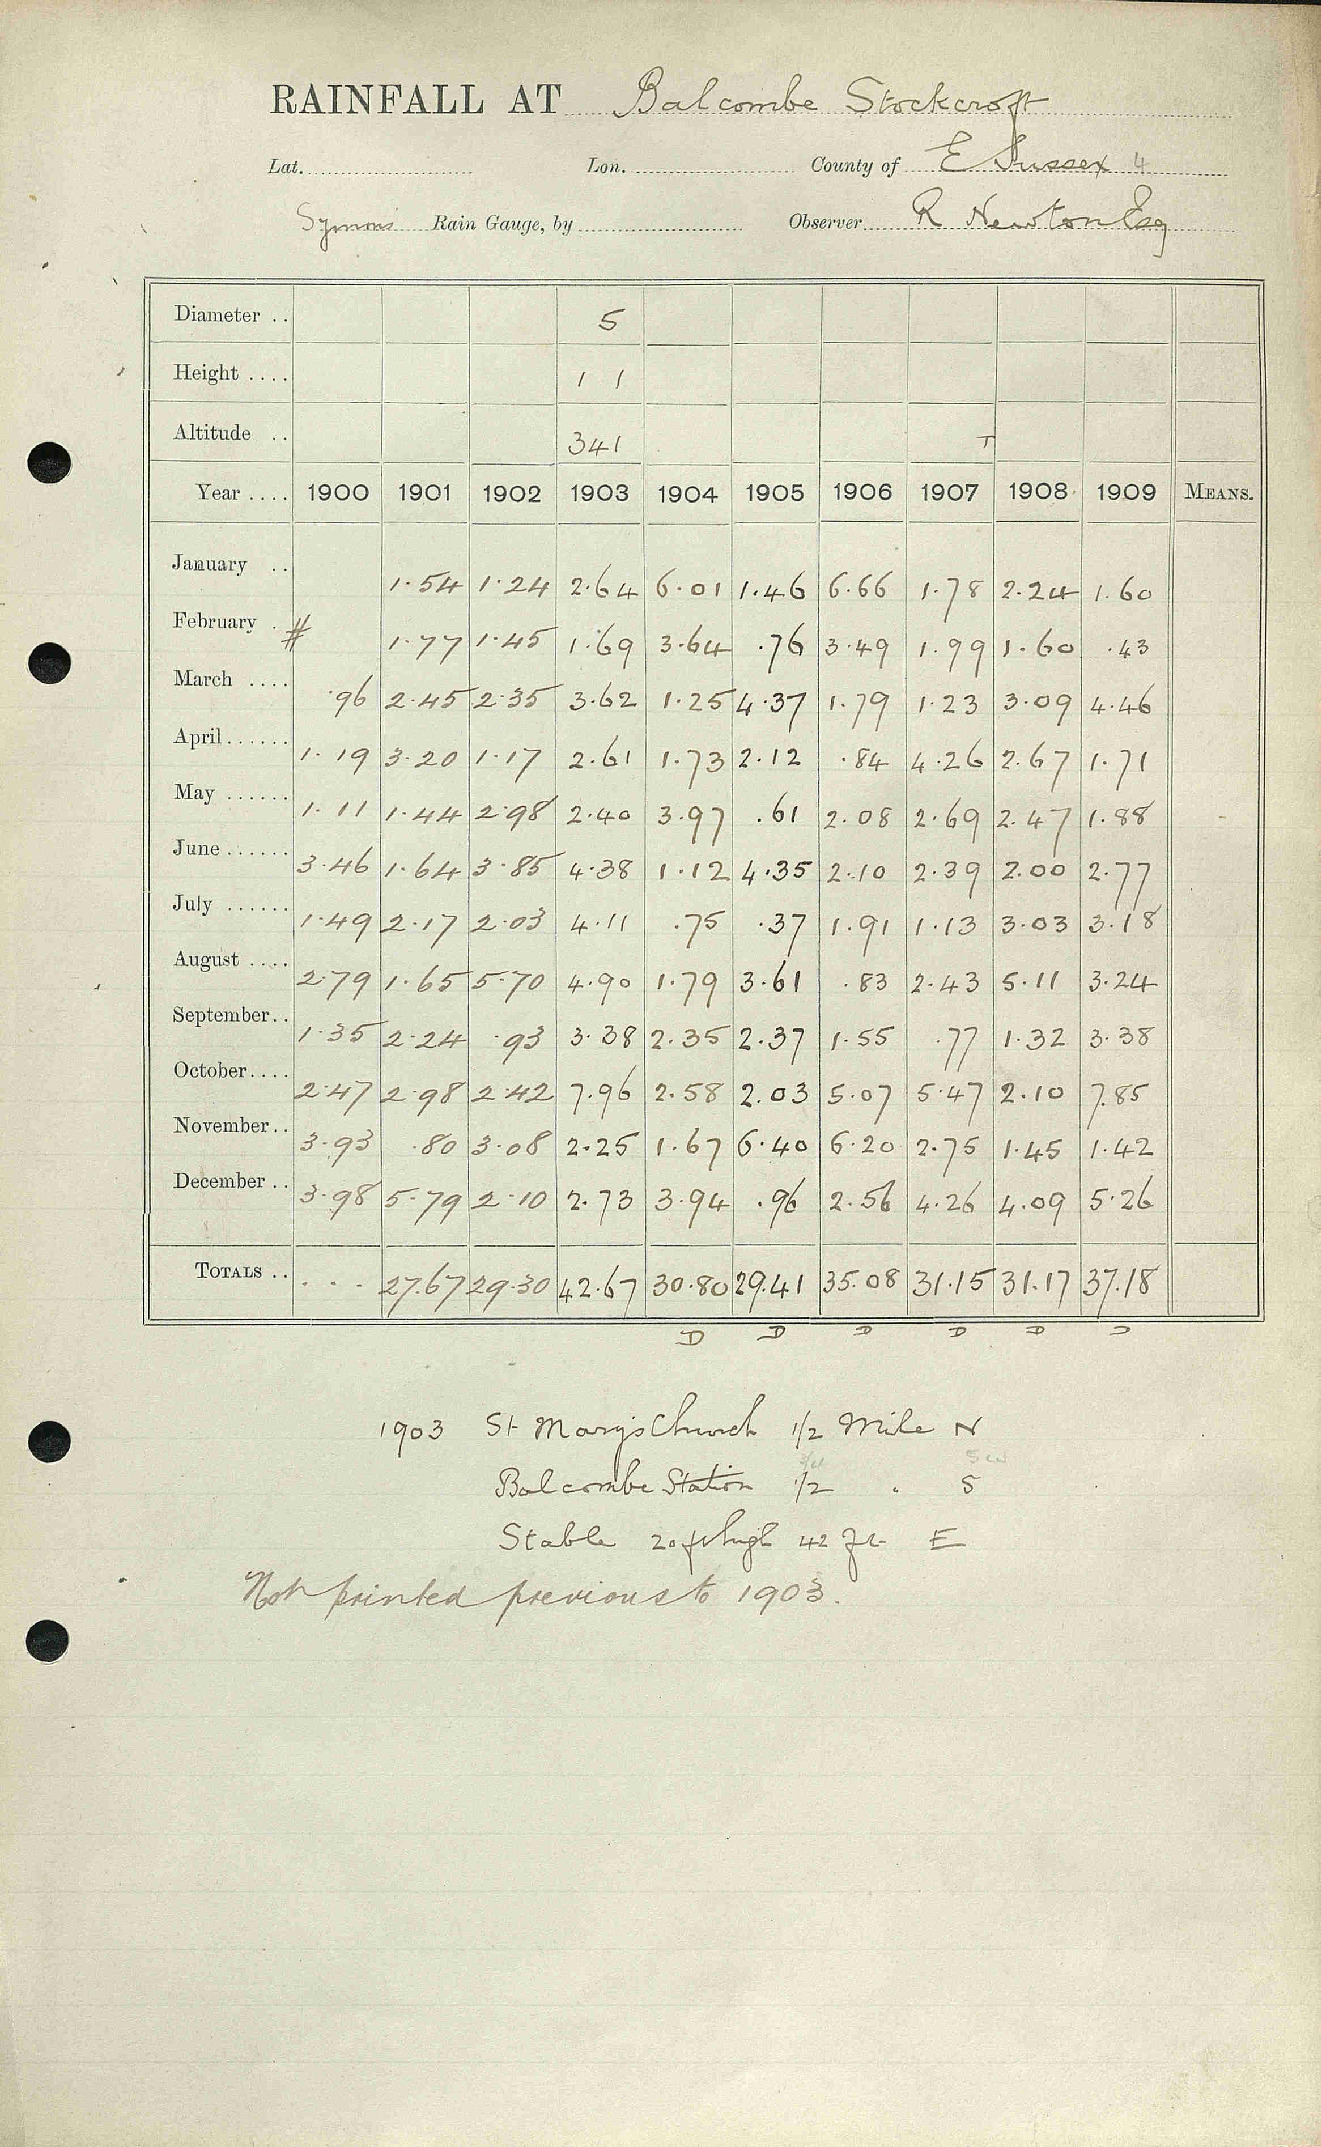 RAINFALL AT Balcombe Stockcroft
Lat. Lon. County of E Sussex 4
Symons Rain Gauge, by Observer R Newton Esq
Diameter .. 5
Height .... 1 1
Altitude .. 341 T
Year .... 1900 1901 1902 1903 1904 1905 1906 1907 1908 1909 MEANS.
January .. 1.54 1.24 2.64 6.01 1.46 6.66 1.78 2.24 1.60
February . # 1.77 1.45 1.69 3.64 .76 3.49 1.99 1.60 .43
March .... .96 2.45 2.35 3.62 1.25 4.37 1.79 1.23 3.09 4.46
April...... 1.19 3.20 1.17 2.61 1.73 2.12 .84 4.26 2.67 1.71
May ...... 1.11 1.44 2.98 2.40 3.97 .61 2.08 2.69 2.47 1.88
June...... 3.46 1.64 3.85 4.38 1.12 4.35 2.10 2.39 2.00 2.77
July ...... 1.49 2.17 2.03 4.11 .75 .37 1.91 1.13 3.03 3.18
August .... 2.79 1.65 5.70 4.90 1.79 3.61 .83 2.43 5.11 3.24
September.. 1.35 2.24 .93 3.38 2.35 2.37 1.55 .77 1.32 3.38
October.... 2.47 2.98 2.42 7.96 2.58 2.03 5.07 5.47 2.10 7.85
November.. 3.93 .80 3.08 2.25 1.67 6.40 6.20 2.75 1.45 1.42
December .. 3.98 5.79 2.10 2.73 3.94 .96 2.56 4.26 4.09 5.26
TOTALS .. . . . 27.67 29.30 42.67 30.80 29.41 35.08 31.15 31.17 37.18
D D D D D D
1903 St Mary's Church 1/2 Mile N
3/4 SW
Balcombe Station 1/2 " S
Stable 20 ft high 42 ft E
Not printed previous to 1903.